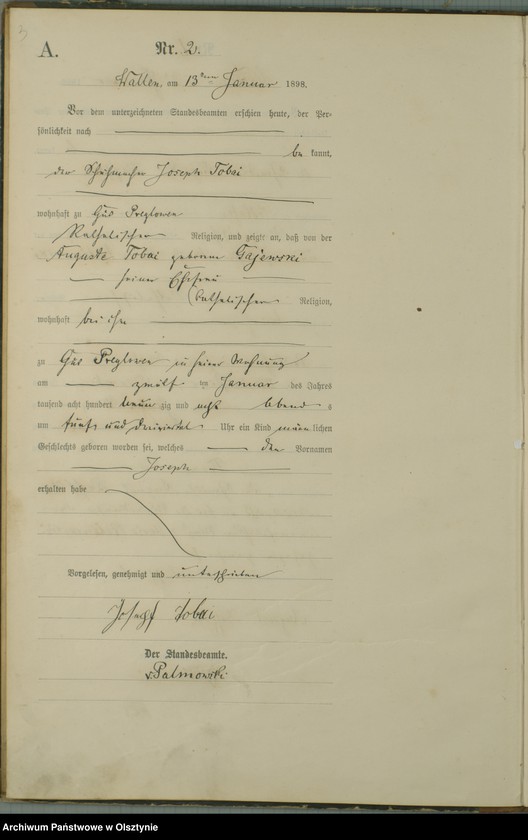 3
A.
Nr. 2.
Wallen, am 13ten Januar 1898.
Vor dem unterzeichneten Standesbeamten erschien heute, der Per-
sönlichkeit nach
be kannt,
der Schuhmacher Joseph Tobai
wohnhaft zu Gut
Katholischer Religion, und zeigte an, daß von der
Auguste Tobai geborene Gajewski
seiner Ehefrau
katholischer Religion,
wohnhaft bei ihm
zu Gut in seiner Wohnung
am zwölf ten Januar des Jahres
tausend acht hundert neun zig und acht Abend s
um fünf und dreiviertel Uhr ein Kind männlichen
Geschlechts geboren worden sei, welches den Vornamen
Joseph
erhalten habe
Vorgelesen, genehmigt und unterschrieben
Josef Tobai
Der Standesbeamte.
v. Palmowski
Archiwum Państwowe w Olsztynie